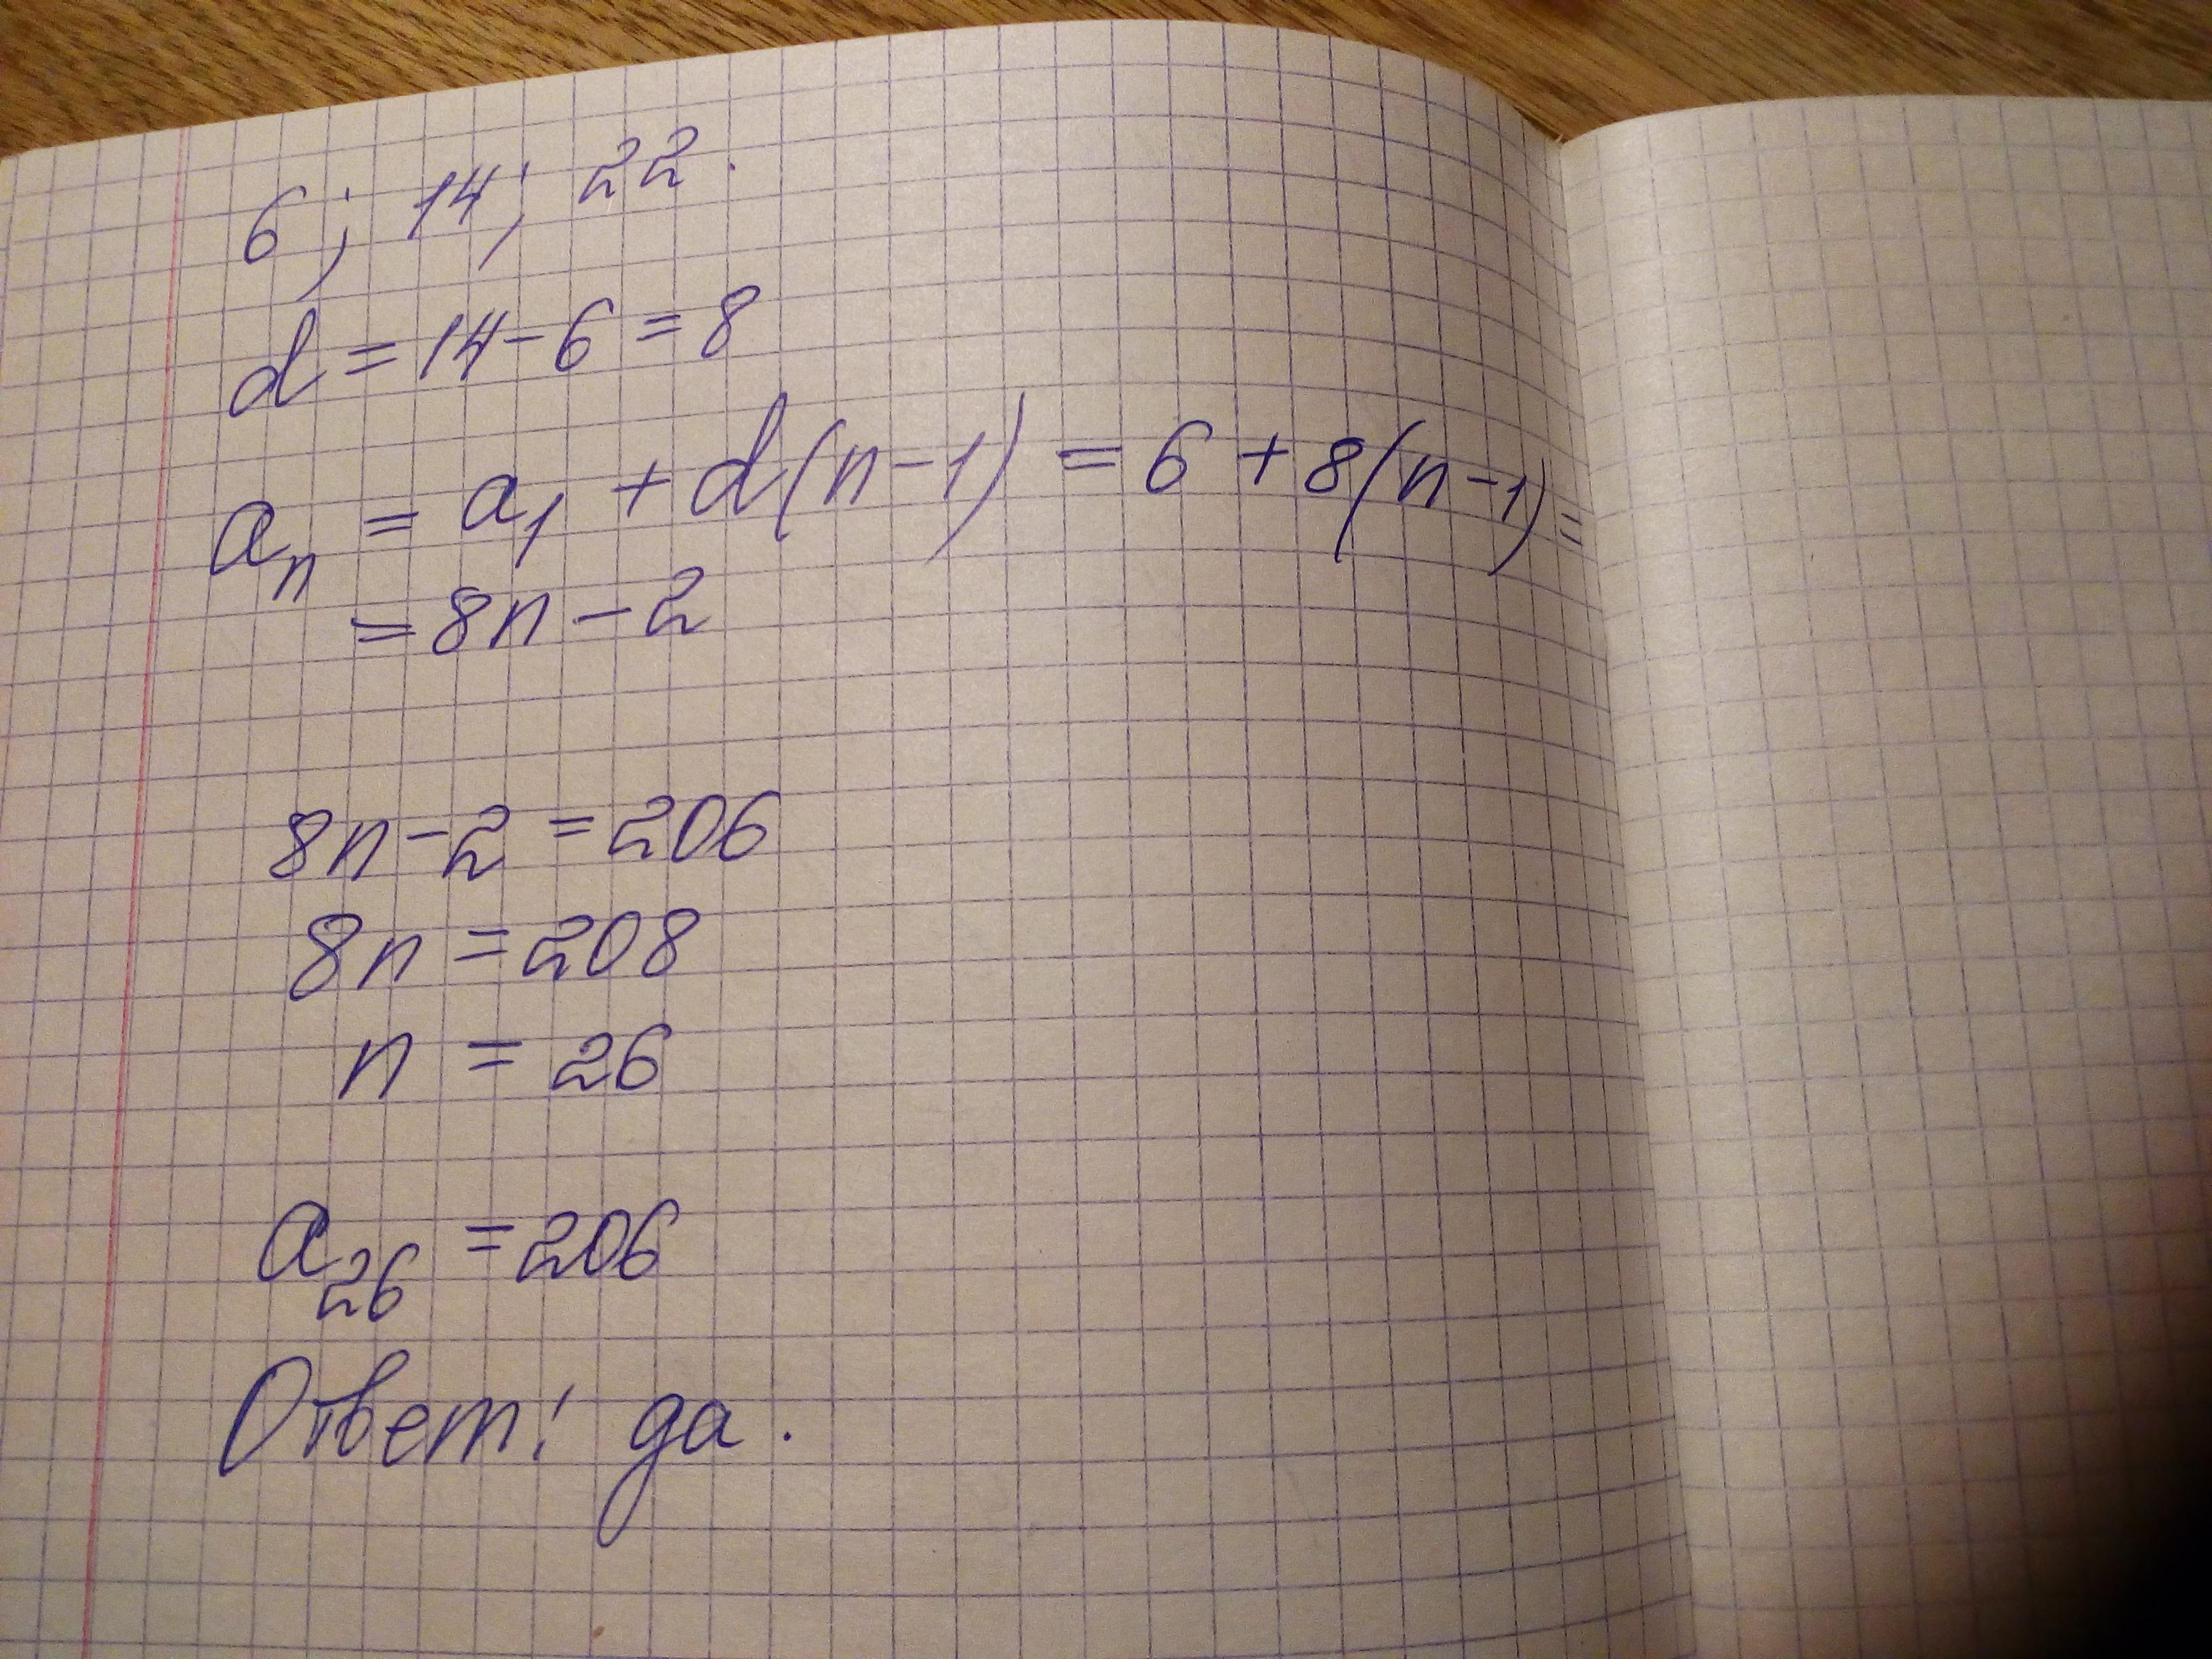 6; 14; 22.
d = 14 - 6 = 8
aₙ = a₁ + d(n-1) = 6 + 8(n-1) =
= 8n - 2
8n - 2 = 206
8n = 208
n = 26
a₂₆ = 206
Ответ: да.